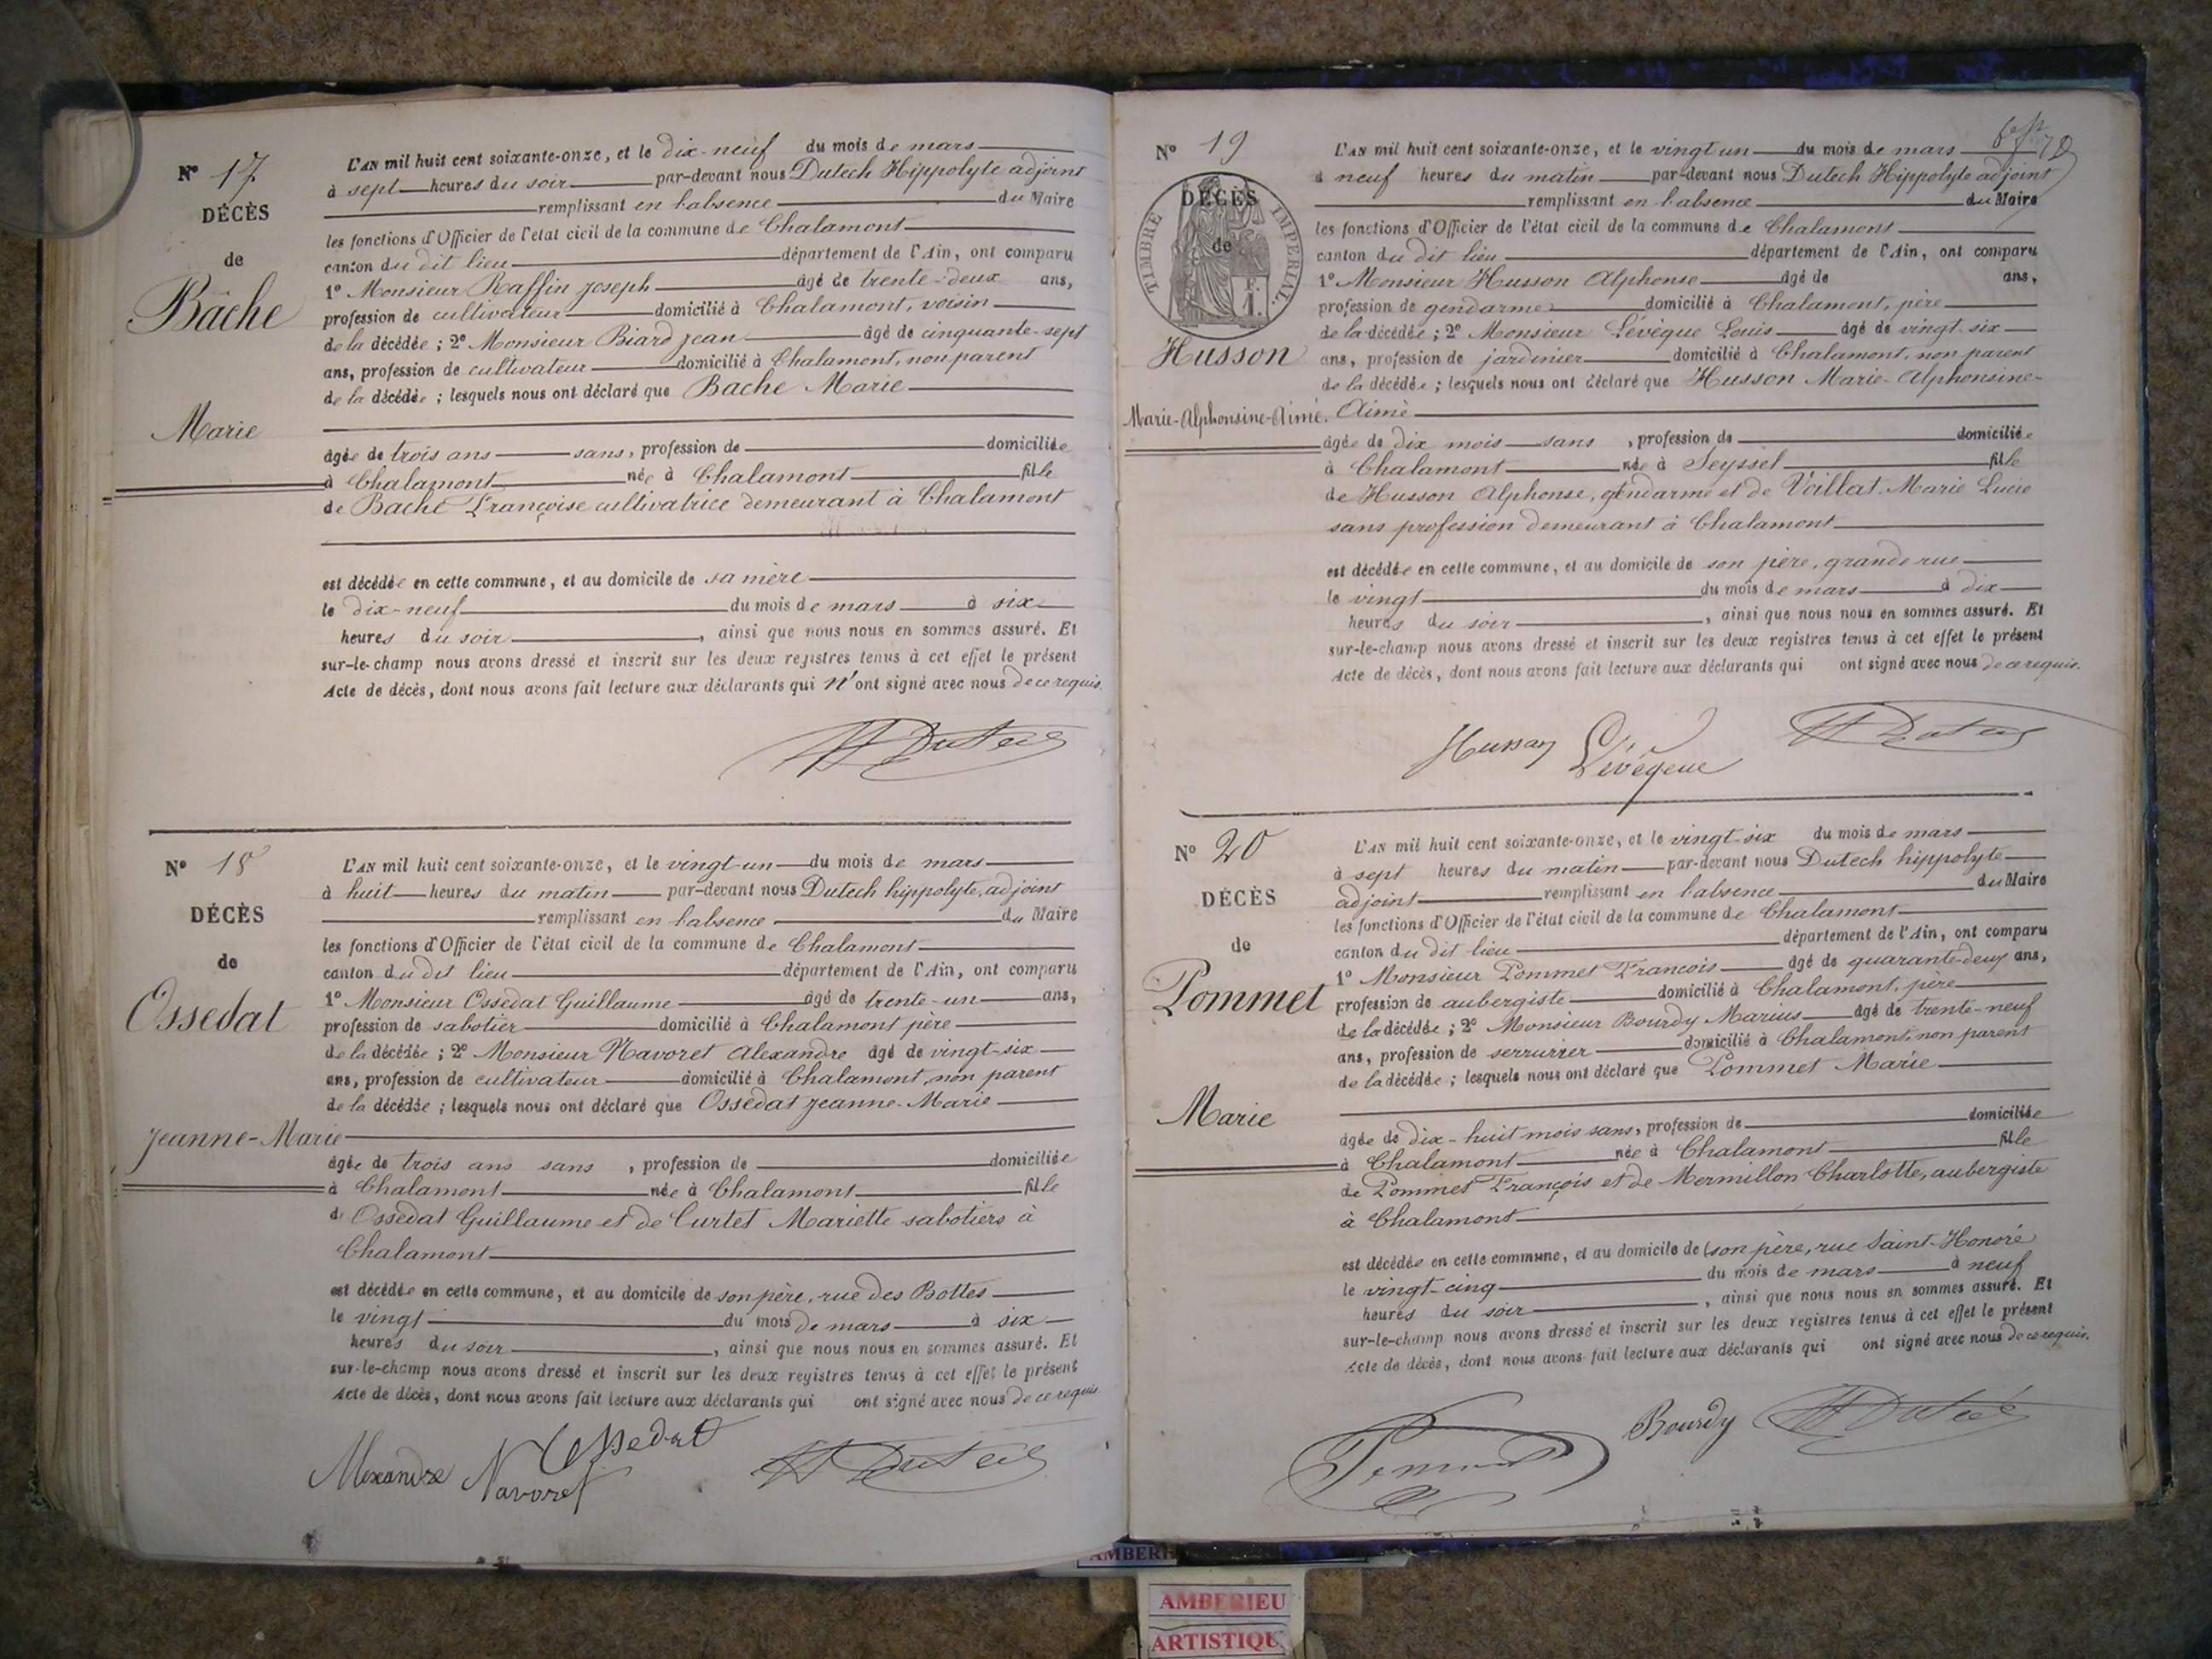 N° 17
DÉCÈS
de
Bâche
Marie
L'AN mil huit cent soixante-onze, et le dix-neuf du mois de mars
à sept heures du soir par-devant nous Dutech Hippolyte adjoint
remplissant en l'absence du Maire
les fonctions d'Officier de l'état civil de la commune de Chalamont
canton du dit lieu département de l'Ain, ont comparu
1° Monsieur Raffin Joseph âgé de trente-deux ans,
profession de cultivateur domicilié à Chalamont, voisin
de la décédée ; 2° Monsieur Biard Jean âgé de cinquante-sept
ans, profession de cultivateur domicilié à Chalamont, non parent
de la décédée ; lesquels nous ont déclaré que Bache Marie
âgée de trois ans sans, profession de domiciliée
à Chalamont née à Chalamont fille
de Bache Françoise cultivatrice demeurant à Chalamont
est décédée en cette commune, et au domicile de sa mère
le dix-neuf du mois de mars à six
heures du soir, ainsi que nous nous en sommes assuré. Et
sur-le-champ nous avons dressé et inscrit sur les deux registres tenus à cet effet le présent
Acte de décès, dont nous avons fait lecture aux déclarants qui n'ont signé avec nous de ce requis.
H Dutech
N° 18
DÉCÈS
de
Ossedat
Jeanne-Marie
L'AN mil huit cent soixante-onze, et le vingt-un du mois de mars
à huit heures du matin par-devant nous Dutech hippolyte, adjoint
remplissant en l'absence du Maire
les fonctions d'Officier de l'état civil de la commune de Chalamont
canton du dit lieu département de l'Ain, ont comparu
1° Monsieur Ossedat Guillaume âgé de trente-un ans,
profession de sabotier domicilié à Chalamont père
de la décédée ; 2° Monsieur Navoret Alexandre âgé de vingt-six
ans, profession de cultivateur domicilié à Chalamont, non parent
de la décédée ; lesquels nous ont déclaré que Ossedat Jeanne-Marie
âgée de trois ans sans, profession de domiciliée
à Chalamont née à Chalamont fille
d' Ossedat Guillaume et de Curtet Mariette sabotiers à
Chalamont
est décédée en cette commune, et au domicile de son père, rue des Bottes
le vingt du mois de mars à six
heures du soir, ainsi que nous nous en sommes assuré. Et
sur-le-champ nous avons dressé et inscrit sur les deux registres tenus à cet effet le présent
Acte de décès, dont nous avons fait lecture aux déclarants qui ont signé avec nous de ce requis.
Ossedat
Alexandre Navoret
H Dutech
N° 19
DÉCÈS
de
TIMBRE IMPÉRIAL
F. 1.
Husson
Marie-Alphonsine-Aimé.
L'AN mil huit cent soixante-onze, et le vingt un du mois de mars
à neuf heures du matin par-devant nous Dutech Hippolyte adjoint
remplissant en l'absence du Maire
les fonctions d'Officier de l'état civil de la commune de Chalamont
canton du dit lieu département de l'Ain, ont comparu
1° Monsieur Husson Alphonse âgé de ans,
profession de gendarme domicilié à Chalamont, père
de la décédée ; 2° Monsieur Lévèque Louis âgé de vingt-six
ans, profession de jardinier domicilié à Chalamont, non parent
de la décédée ; lesquels nous ont déclaré que Husson Marie-Alphonsine-
Aimé
âgée de dix mois sans, profession de domiciliée
à Chalamont née à Seyssel fille
de Husson Alphonse, gendarme et de Voillat Marie Lucie
sans profession demeurant à Chalamont
est décédée en cette commune, et au domicile de son père, grande rue
le vingt du mois de mars à dix
heures du soir, ainsi que nous nous en sommes assuré. Et
sur-le-champ nous avons dressé et inscrit sur les deux registres tenus à cet effet le présent
Acte de décès, dont nous avons fait lecture aux déclarants qui ont signé avec nous de ce requis.
Husson Lévêque H Dutech
N° 20
DÉCÈS
de
Pommet
Marie
L'AN mil huit cent soixante-onze, et le vingt-six du mois de mars
à sept heures du matin par-devant nous Dutech hippolyte
adjoint remplissant en l'absence du Maire
les fonctions d'Officier de l'état civil de la commune de Chalamont
canton du dit lieu département de l'Ain, ont comparu
1° Monsieur Pommet François âgé de quarante-deux ans,
profession de aubergiste domicilié à Chalamont, père
de la décédée ; 2° Monsieur Bourdy Marius âgé de trente-neuf
ans, profession de serrurier domicilié à Chalamont, non parent
de la décédée ; lesquels nous ont déclaré que Pommet Marie
âgée de dix-huit mois sans, profession de domiciliée
à Chalamont née à Chalamont fille
de Pommet François et de Mermillon Charlotte, aubergiste
à Chalamont
est décédée en cette commune, et au domicile de son père, rue Saint-Honoré
le vingt-cinq du mois de mars à neuf
heures du soir, ainsi que nous nous en sommes assuré. Et
sur-le-champ nous avons dressé et inscrit sur les deux registres tenus à cet effet le présent
Acte de décès, dont nous avons fait lecture aux déclarants qui ont signé avec nous de ce requis.
Bourdy H Dutech
AMBERIEU
ARTISTIQU